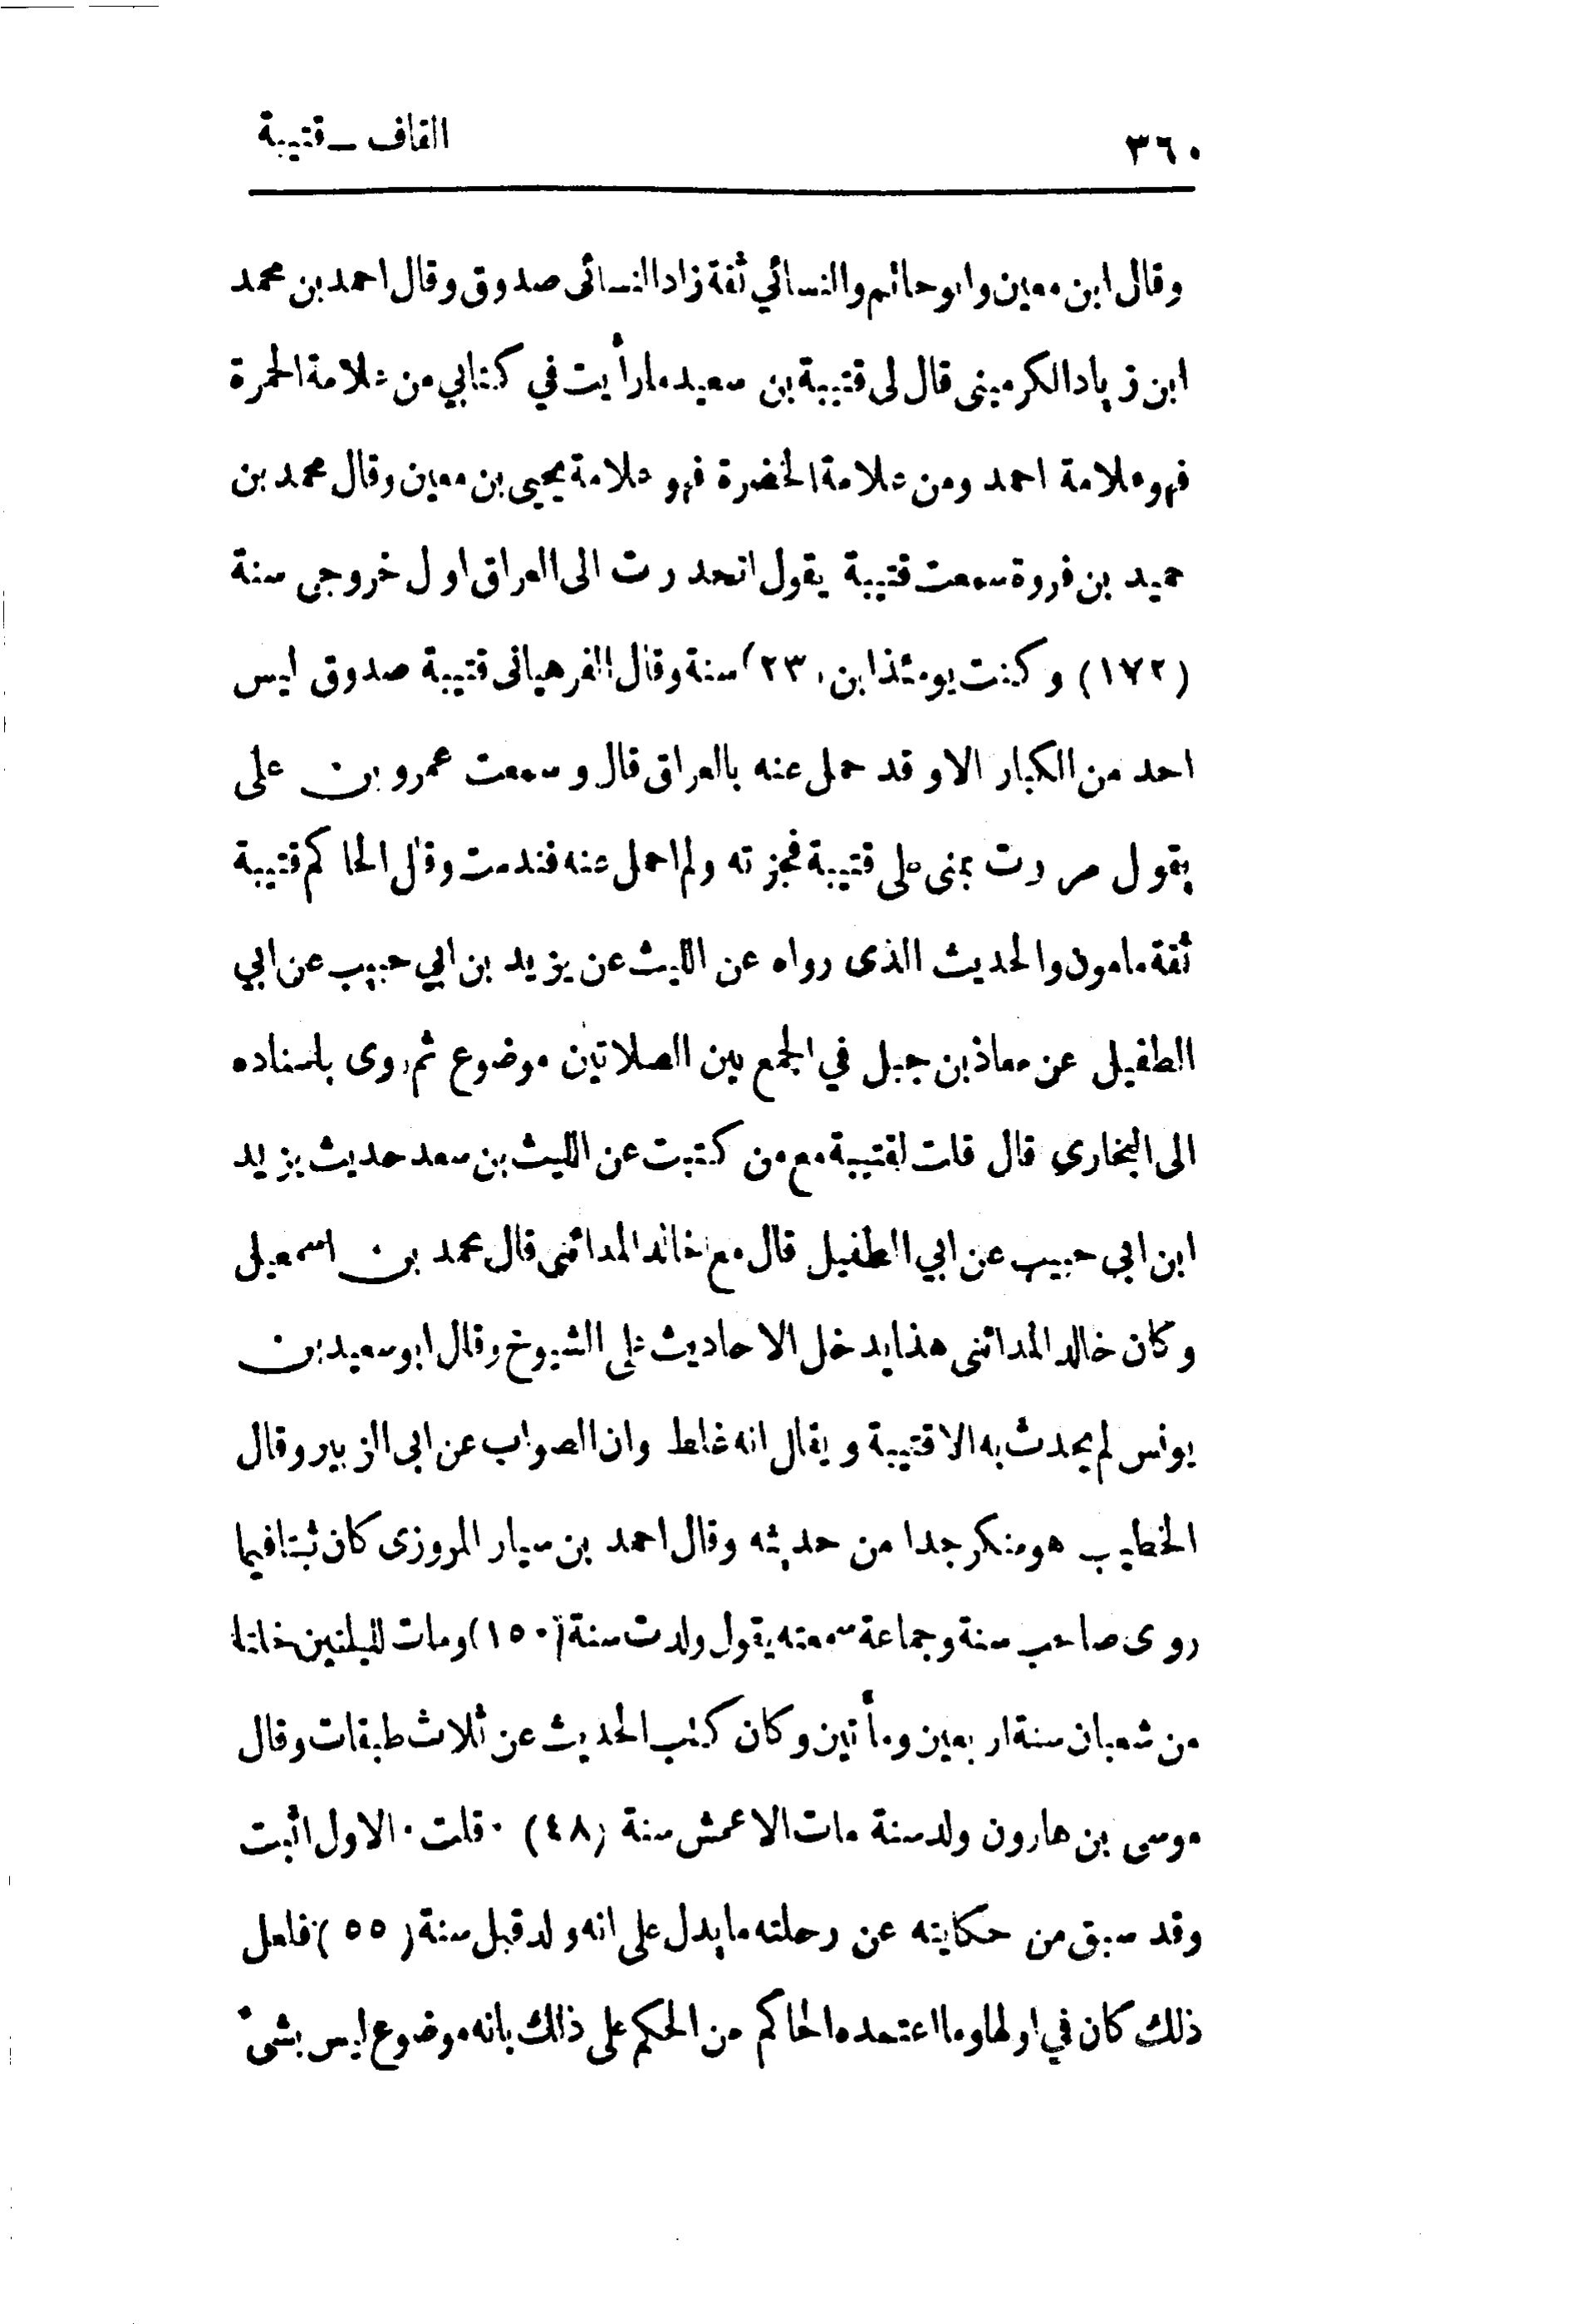 ٣٦٠ القاف ـ قتيبة
وقال ابن معين وابو حاتم والنسائي ثقة زاد النسائى صدوق وقال احمد بن محمد
ابن زياد الكرمينى قال لى قتيبة بن سعيد ما رأيت في كتابي من علامة الحمرة
فهو علامة احمد ومن علامة الخضرة فهو علامة يحيى بن معين وقال محمد بن
حميد بن فروة سمعت قتيبة يقول انحدرت الى العراق اول خروجى سنة
(١٧٢) وكنت يومئذ ابن (٢٣) سنة وقال الفرهيانى قتيبة صدوق ليس
احد من الكبار الا وقد حمل عنه بالعراق قال وسمعت عمرو بن على
يقول مررت بمنى على قتيبة فجزته ولم احمل عنه فندمت وقال الحاكم قتيبة
ثقة مامون والحديث الذى رواه عن الليث عن يزيد بن ابي حبيب عن ابي
الطفيل عن معاذ بن جبل في الجمع بين الصلاتين موضوع ثم روى باسناده
الى البخاري قال قلت لقتيبة مع من كتبت عن الليث بن سعد حديث يزيد
ابن ابى حبيب عن ابي الطفيل قال مع خالد المدائنى قال محمد بن اسمعيل
وكان خالد المدائنى هذا يدخل الاحاديث على الشيوخ وقال ابو سعيد بن
يونس لم يحدث به الا قتيبة ويقال انه غلط وان الصواب عن ابى الزبير وقال
الخطيب هو منكر جدا من حديثه وقال احمد بن سيار المروزى كان ثبتا فيما
روى صاحب سنة وجماعة سمعته يقول ولدت سنة (١٥٠) ومات لليلتين خلتا
من شعبان سنة اربعين ومأتين وكان كتب الحديث عن ثلاث طبقات وقال
موسى بن هارون ولد سنة مات الاعمش سنة (٤٨) ٠ قلت ٠ الاول اثبت
وقد سبق من حكايته عن رحلته ما يدل على انه ولد قبل سنة (٥٥) فلعل
ذلك كان في اولها وما اعتمده الحاكم من الحكم على ذلك بانه موضوع ليس بشىء